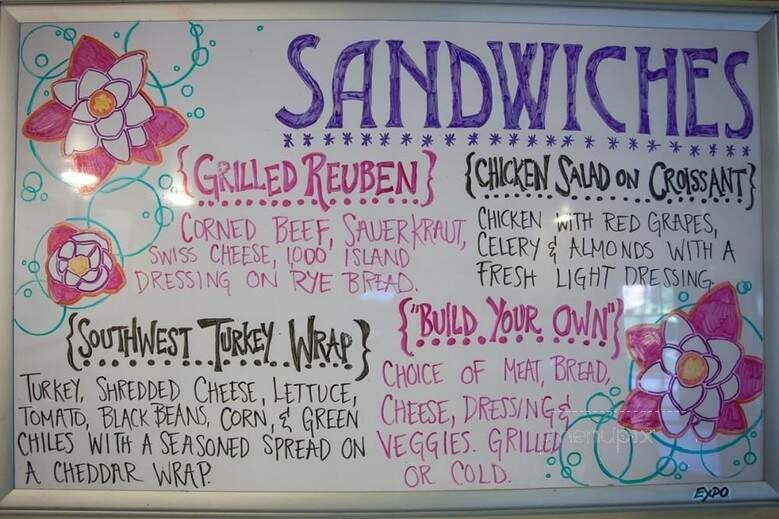 SANDWICHES
{GRILLED REUBEN}
CORNED BEEF, SAUERKRAUT,
SWISS CHEESE, 1000 ISLAND
DRESSING ON RYE BREAD.
{CHICKEN SALAD ON CROISSANT}
CHICKEN WITH RED GRAPES,
CELERY & ALMONDS WITH A
FRESH LIGHT DRESSING.
{SOUTHWEST TURKEY WRAP}
TURKEY, SHREDDED CHEESE, LETTUCE,
TOMATO, BLACK BEANS, CORN, & GREEN
CHILES WITH A SEASONED SPREAD ON
A CHEDDAR WRAP.
{"BUILD YOUR OWN"}
CHOICE OF MEAT, BREAD,
CHEESE, DRESSING &
VEGGIES. GRILLED
OR COLD.
menupix
EXPO